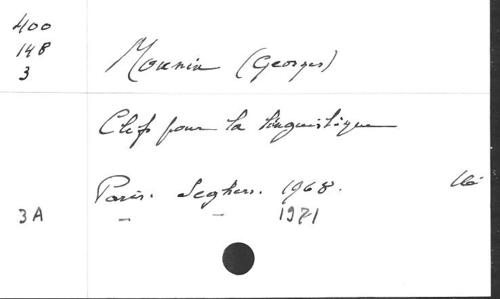 400
148
3
Mounin (Georges)
Clefs pour la linguistique
Paris. Seghers. 1968.
3A " " 1971